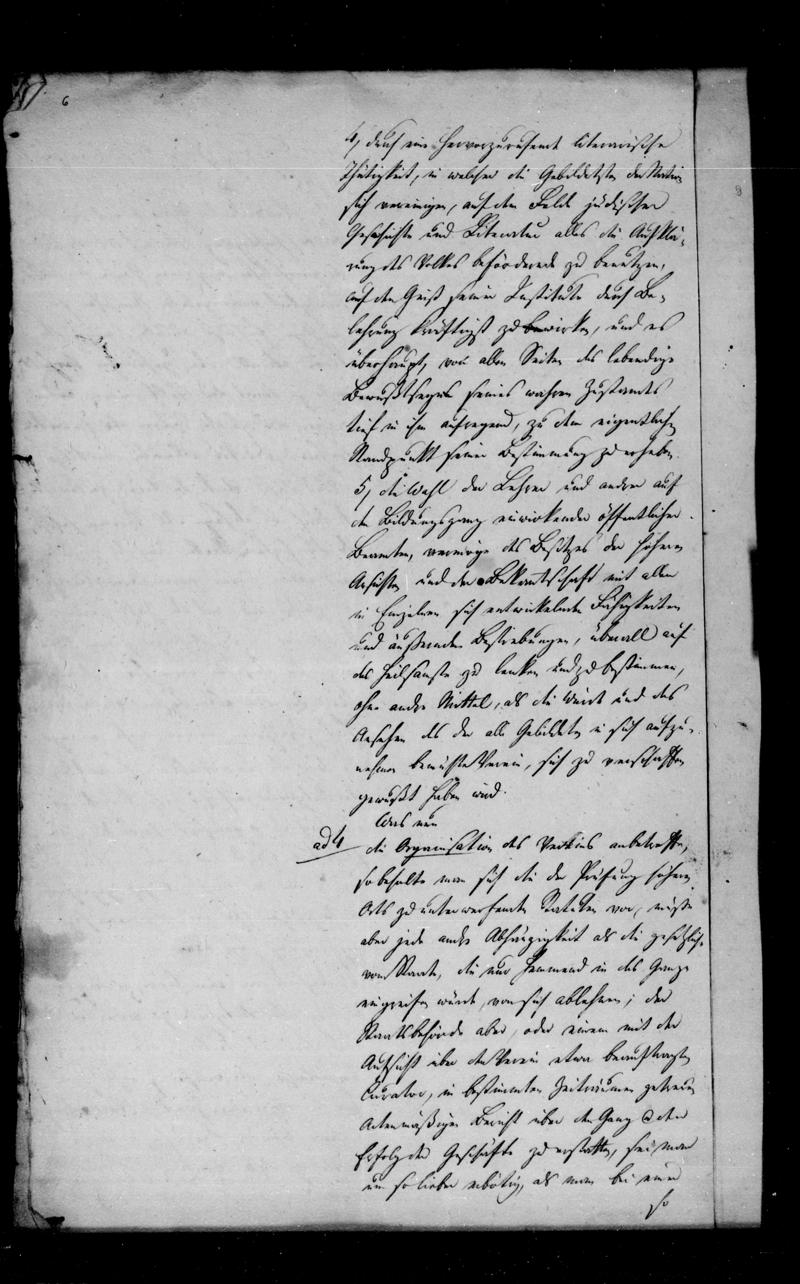 6
4, durch eine hervorzurufende literarische
Thätigkeit, in welcher die Gebildetsten der Nation
sich vereinigen, auf dem Felde jüdischer
Geschichte und Literatur alles die Aufklä-
rung des Volkes befördernde zu benutzen,
auf den Geist seiner Institute durch Be-
lehrung kräftigst zu bewirken, und es
überhaupt, von allen Seiten das lebendige
Bewußtseyn seines wahren Zustandes
tief in ihm aufregend, zu dem eigentlichen
Standpunkt seiner Bestimmung zu erheben.
5, die Wahl der Lehrer und andrer auf
den Bildungsgang einwirkender öffentlicher
Beamten, vermöge des Besitzes der höhern
Ansichten und der Bekanntschaft mit allen
in Einzelnen sich entwickelnden Fähigkeiten
und äußernden Bestrebungen, überall auf
das Heilsamste zu lenken und zu bestimmen,
ohne andre Mittel, als die Würde und das
Ansehen das der alle Gebildeten in sich aufzu-
nehmen bemühte Verein, sich zu verschaffen
gewußt haben wird.
Was nun
ad 4 die Organisation des Vereins anbetreffe,
so behalte man sich die der Prüfung höhern
Orts zu unterwerfenden Statuten vor, müsse
aber jede andre Abhängigkeit als die gesetzliche
vom Staate, die nur hemmend in das Ganze
eingreifen würde, von sich ablehnen; der
Staatsbehörde aber, oder einem mit der
Aufsicht über den Verein etwa beauftragten
Curator, in bestimmten Zeiträumen getreuen
Actenmäßigen Bericht über den Gang & den
Erfolg der Geschäfte zu erstatten, sei man
um so lieber erbötig, als man bei einer
so